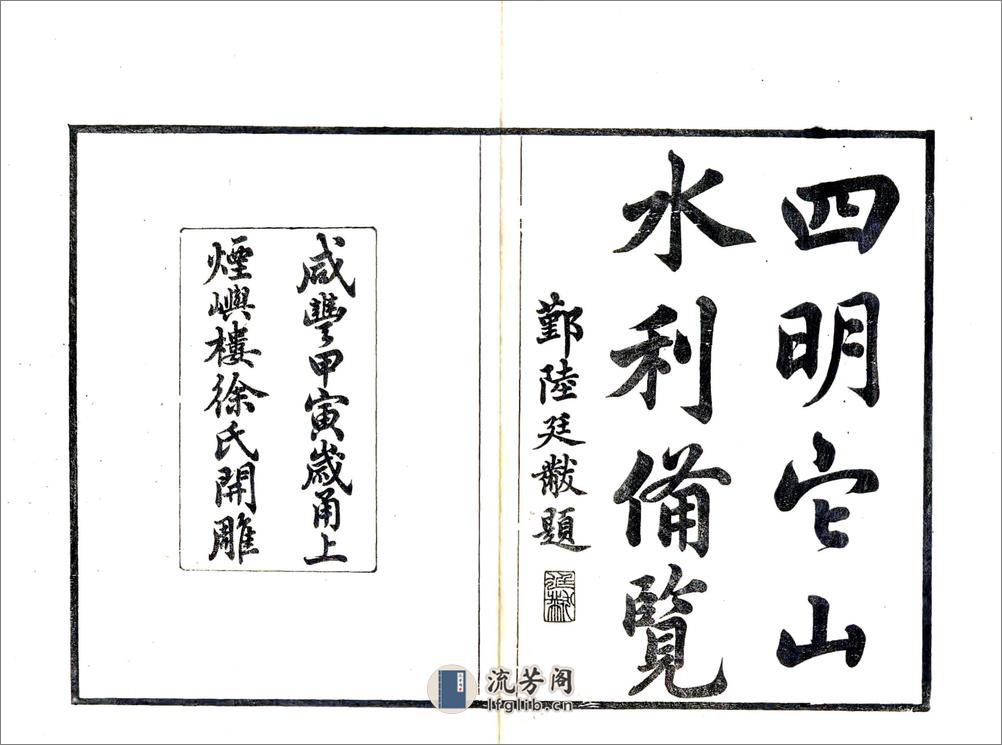 四明它山
水利備覽
鄞陸廷黻題
廷黻
咸豐甲寅歲甬上
煙嶼樓徐氏開雕
流芳阁
lfglib.cn